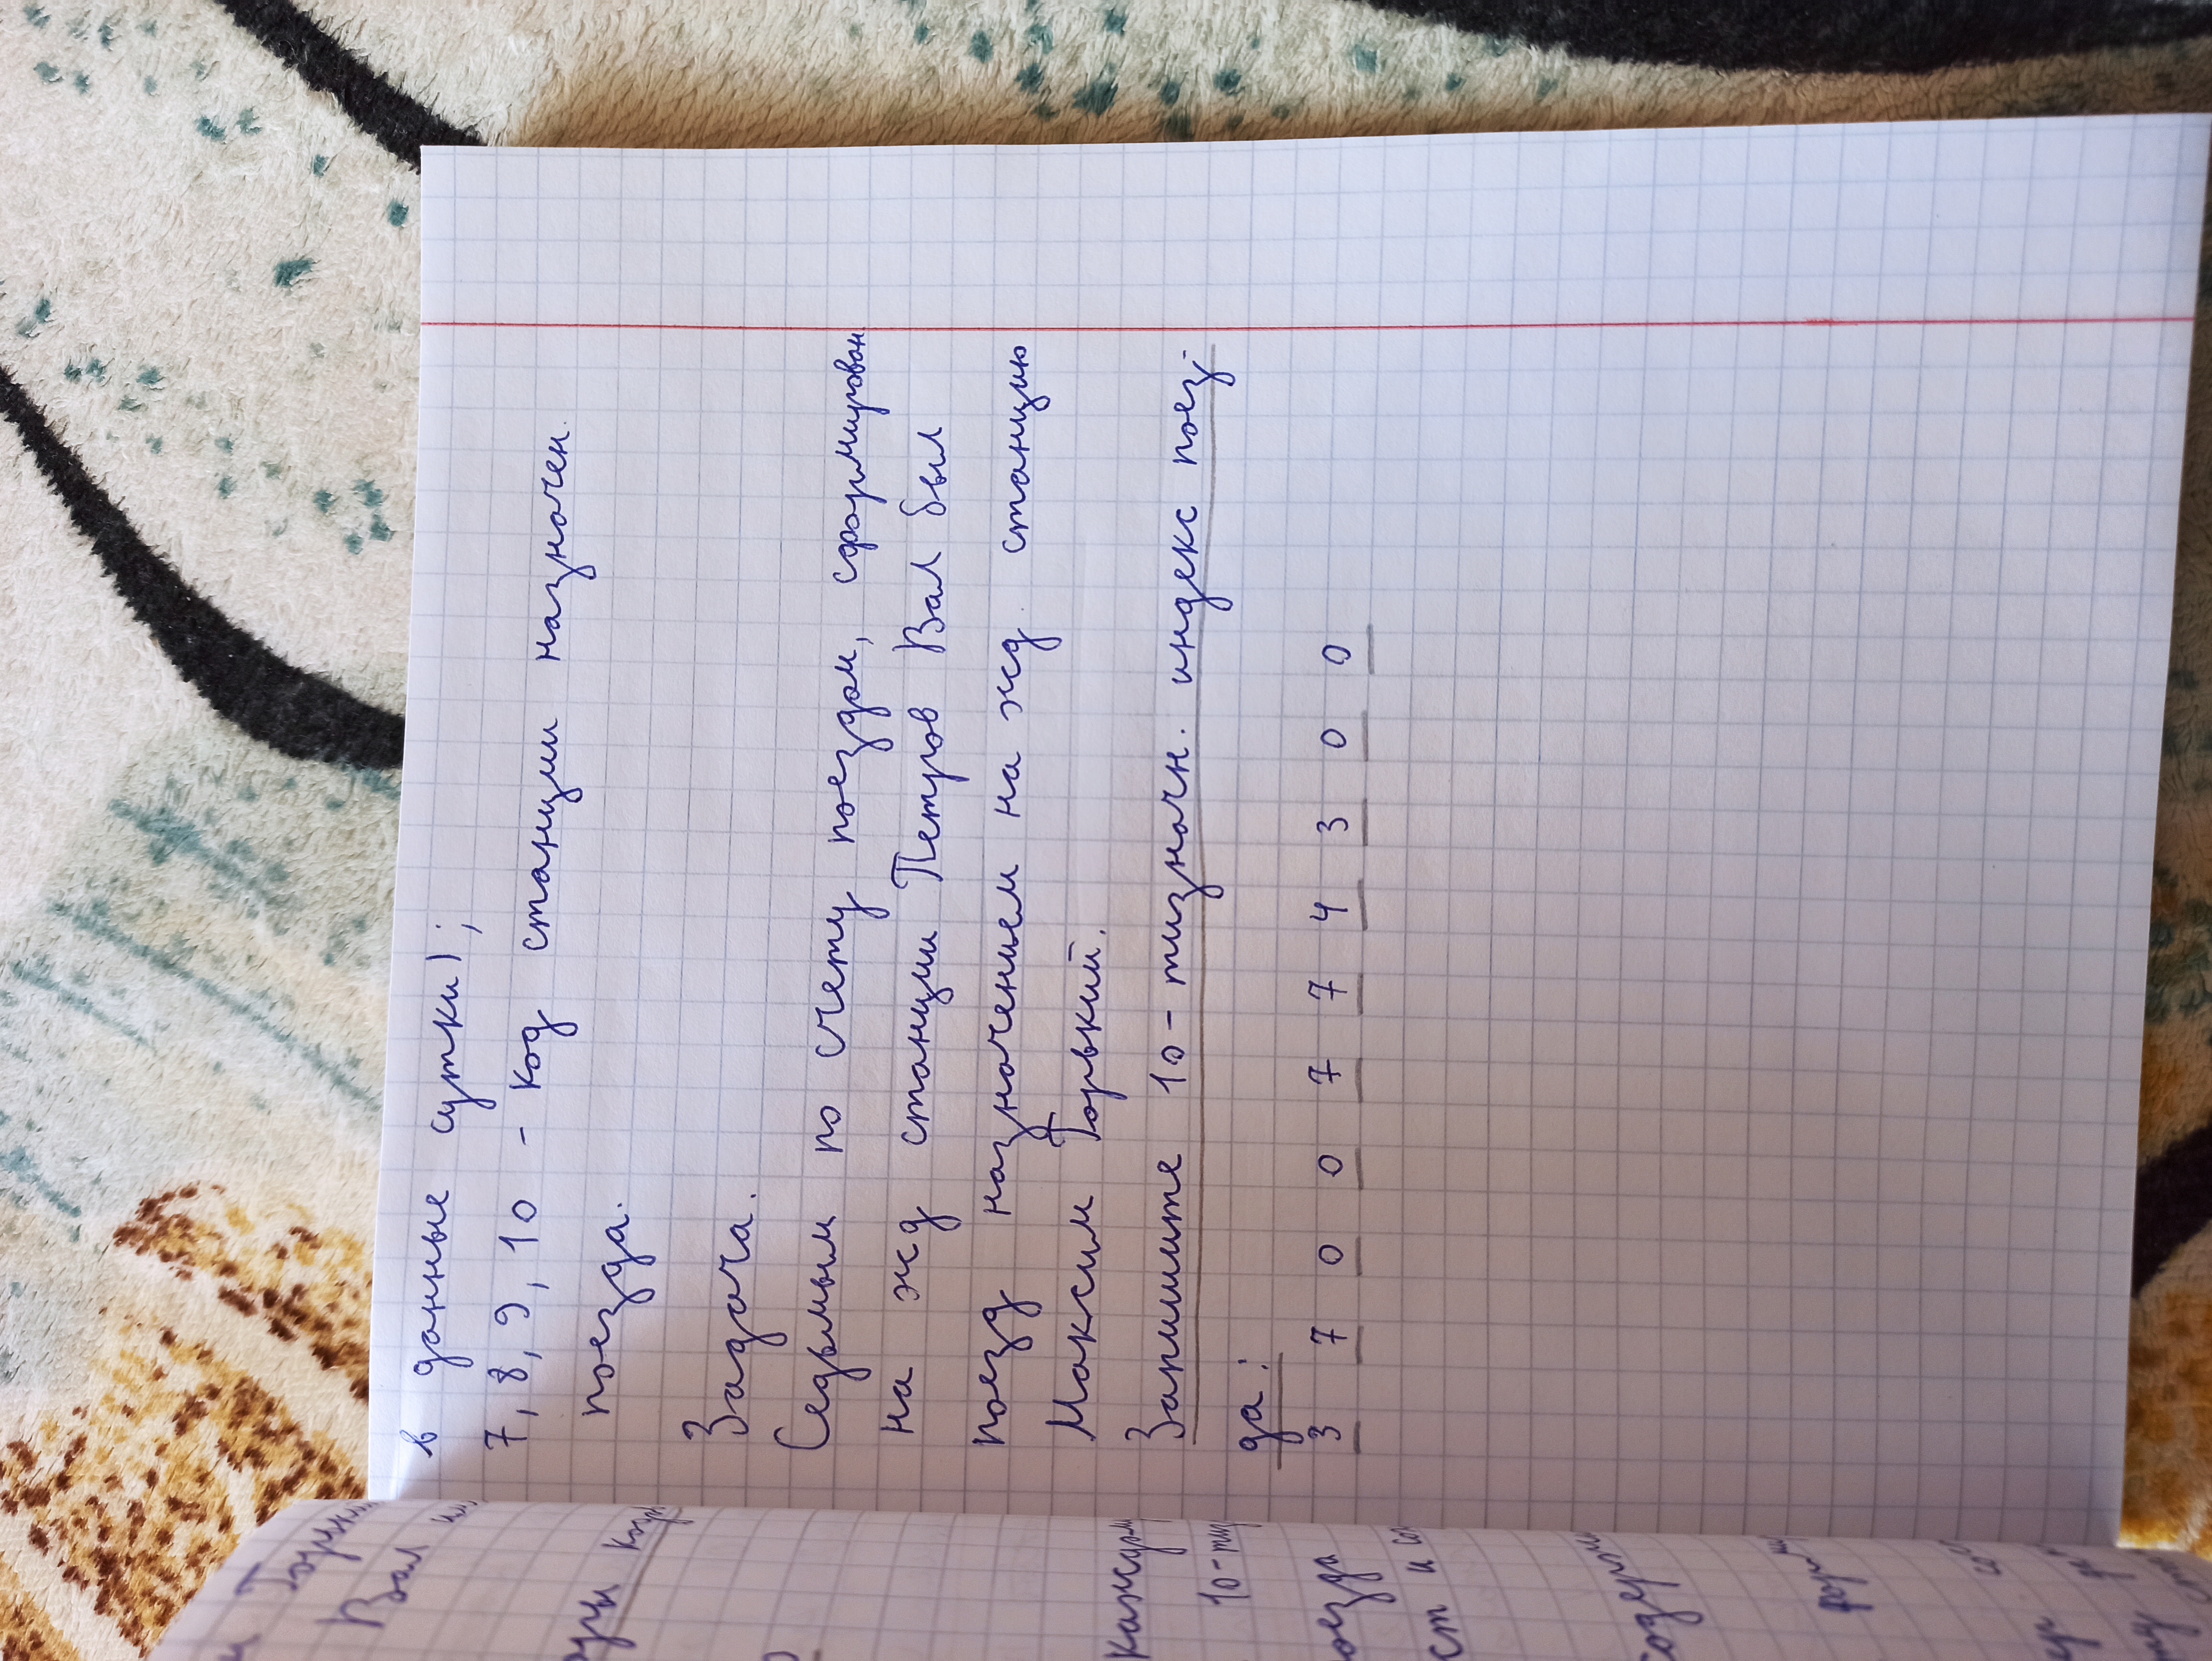 в данные сутки);
7, 8, 9, 10 - код станции назначен.
поезда.
Задача.
Седьмым по счету поездом, сформирован
на жд станции Петров Вал был
поезд назначением на жд. станцию
Максим Горький.
Запишите 10-тизначн. индекс поез-
да:
3 7 0 0 7 7 4 3 0 0
Вал
10-тиз